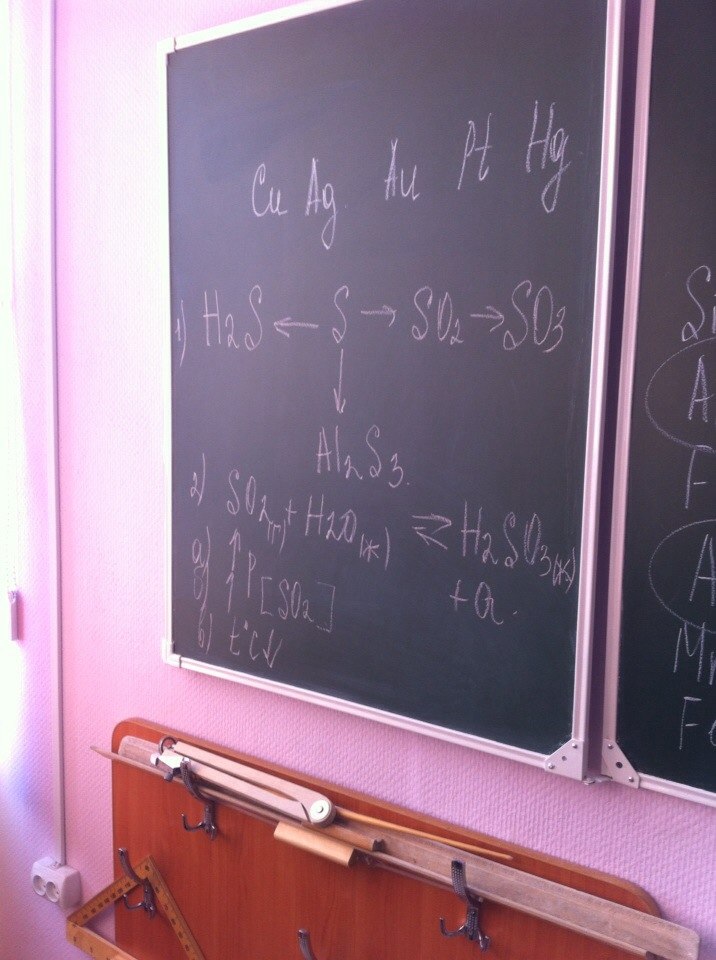 Cu Ag Au Pt Hg
1) H2S ← S → SO2 → SO3
↓
Al2S3.
2) SO2(г) + H2O(ж) ⇌ H2SO3(ж)
+ Q.
а) ↑P
б) ↑[SO2]
в) t°C↓
Si
A
F
A
Mn
Fe